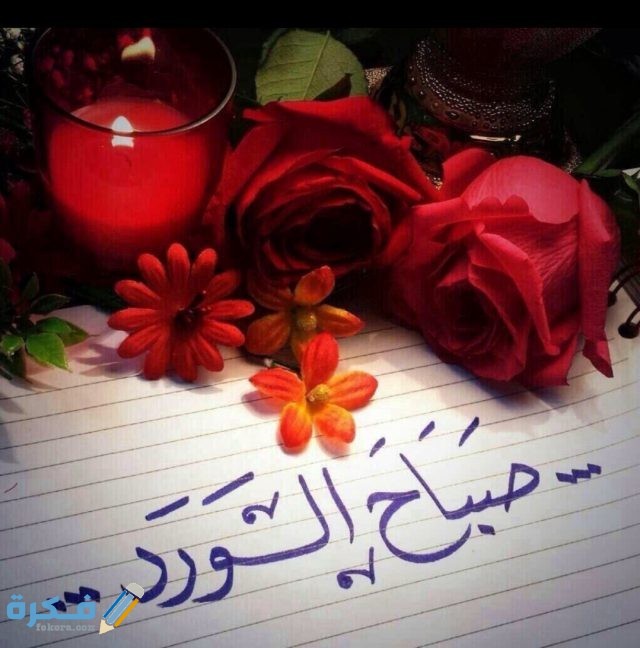 ... صَبَاحُ الْوَرَد ...
فكرة
fekera.com